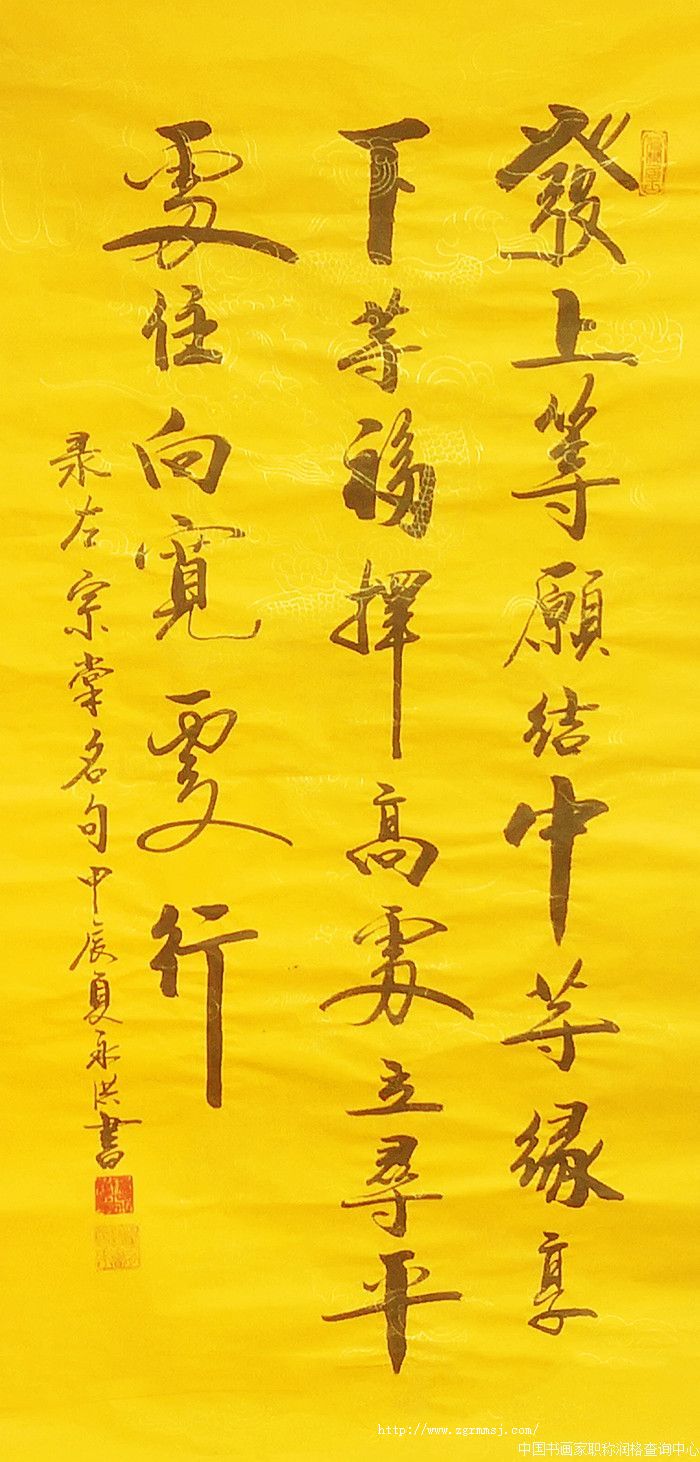 發上等願結中等緣享
下等福擇高處立尋平
處住向寬處行
录左宗棠名句甲辰夏永洪書
http://www.zgrmmsj.com/
中国书画家职称润格查询中心